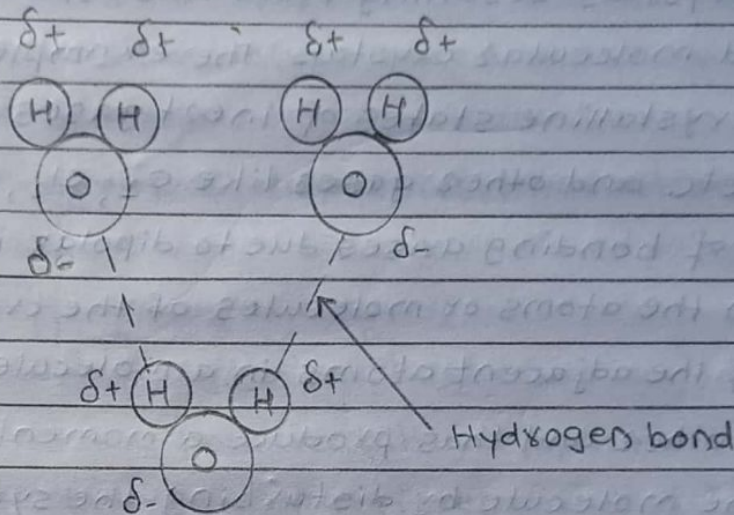 δ+ δ+ δ+ δ+
H H H H
O O
δ- δ-
δ+ H H δ+
Hydrogen bond
O
δ-